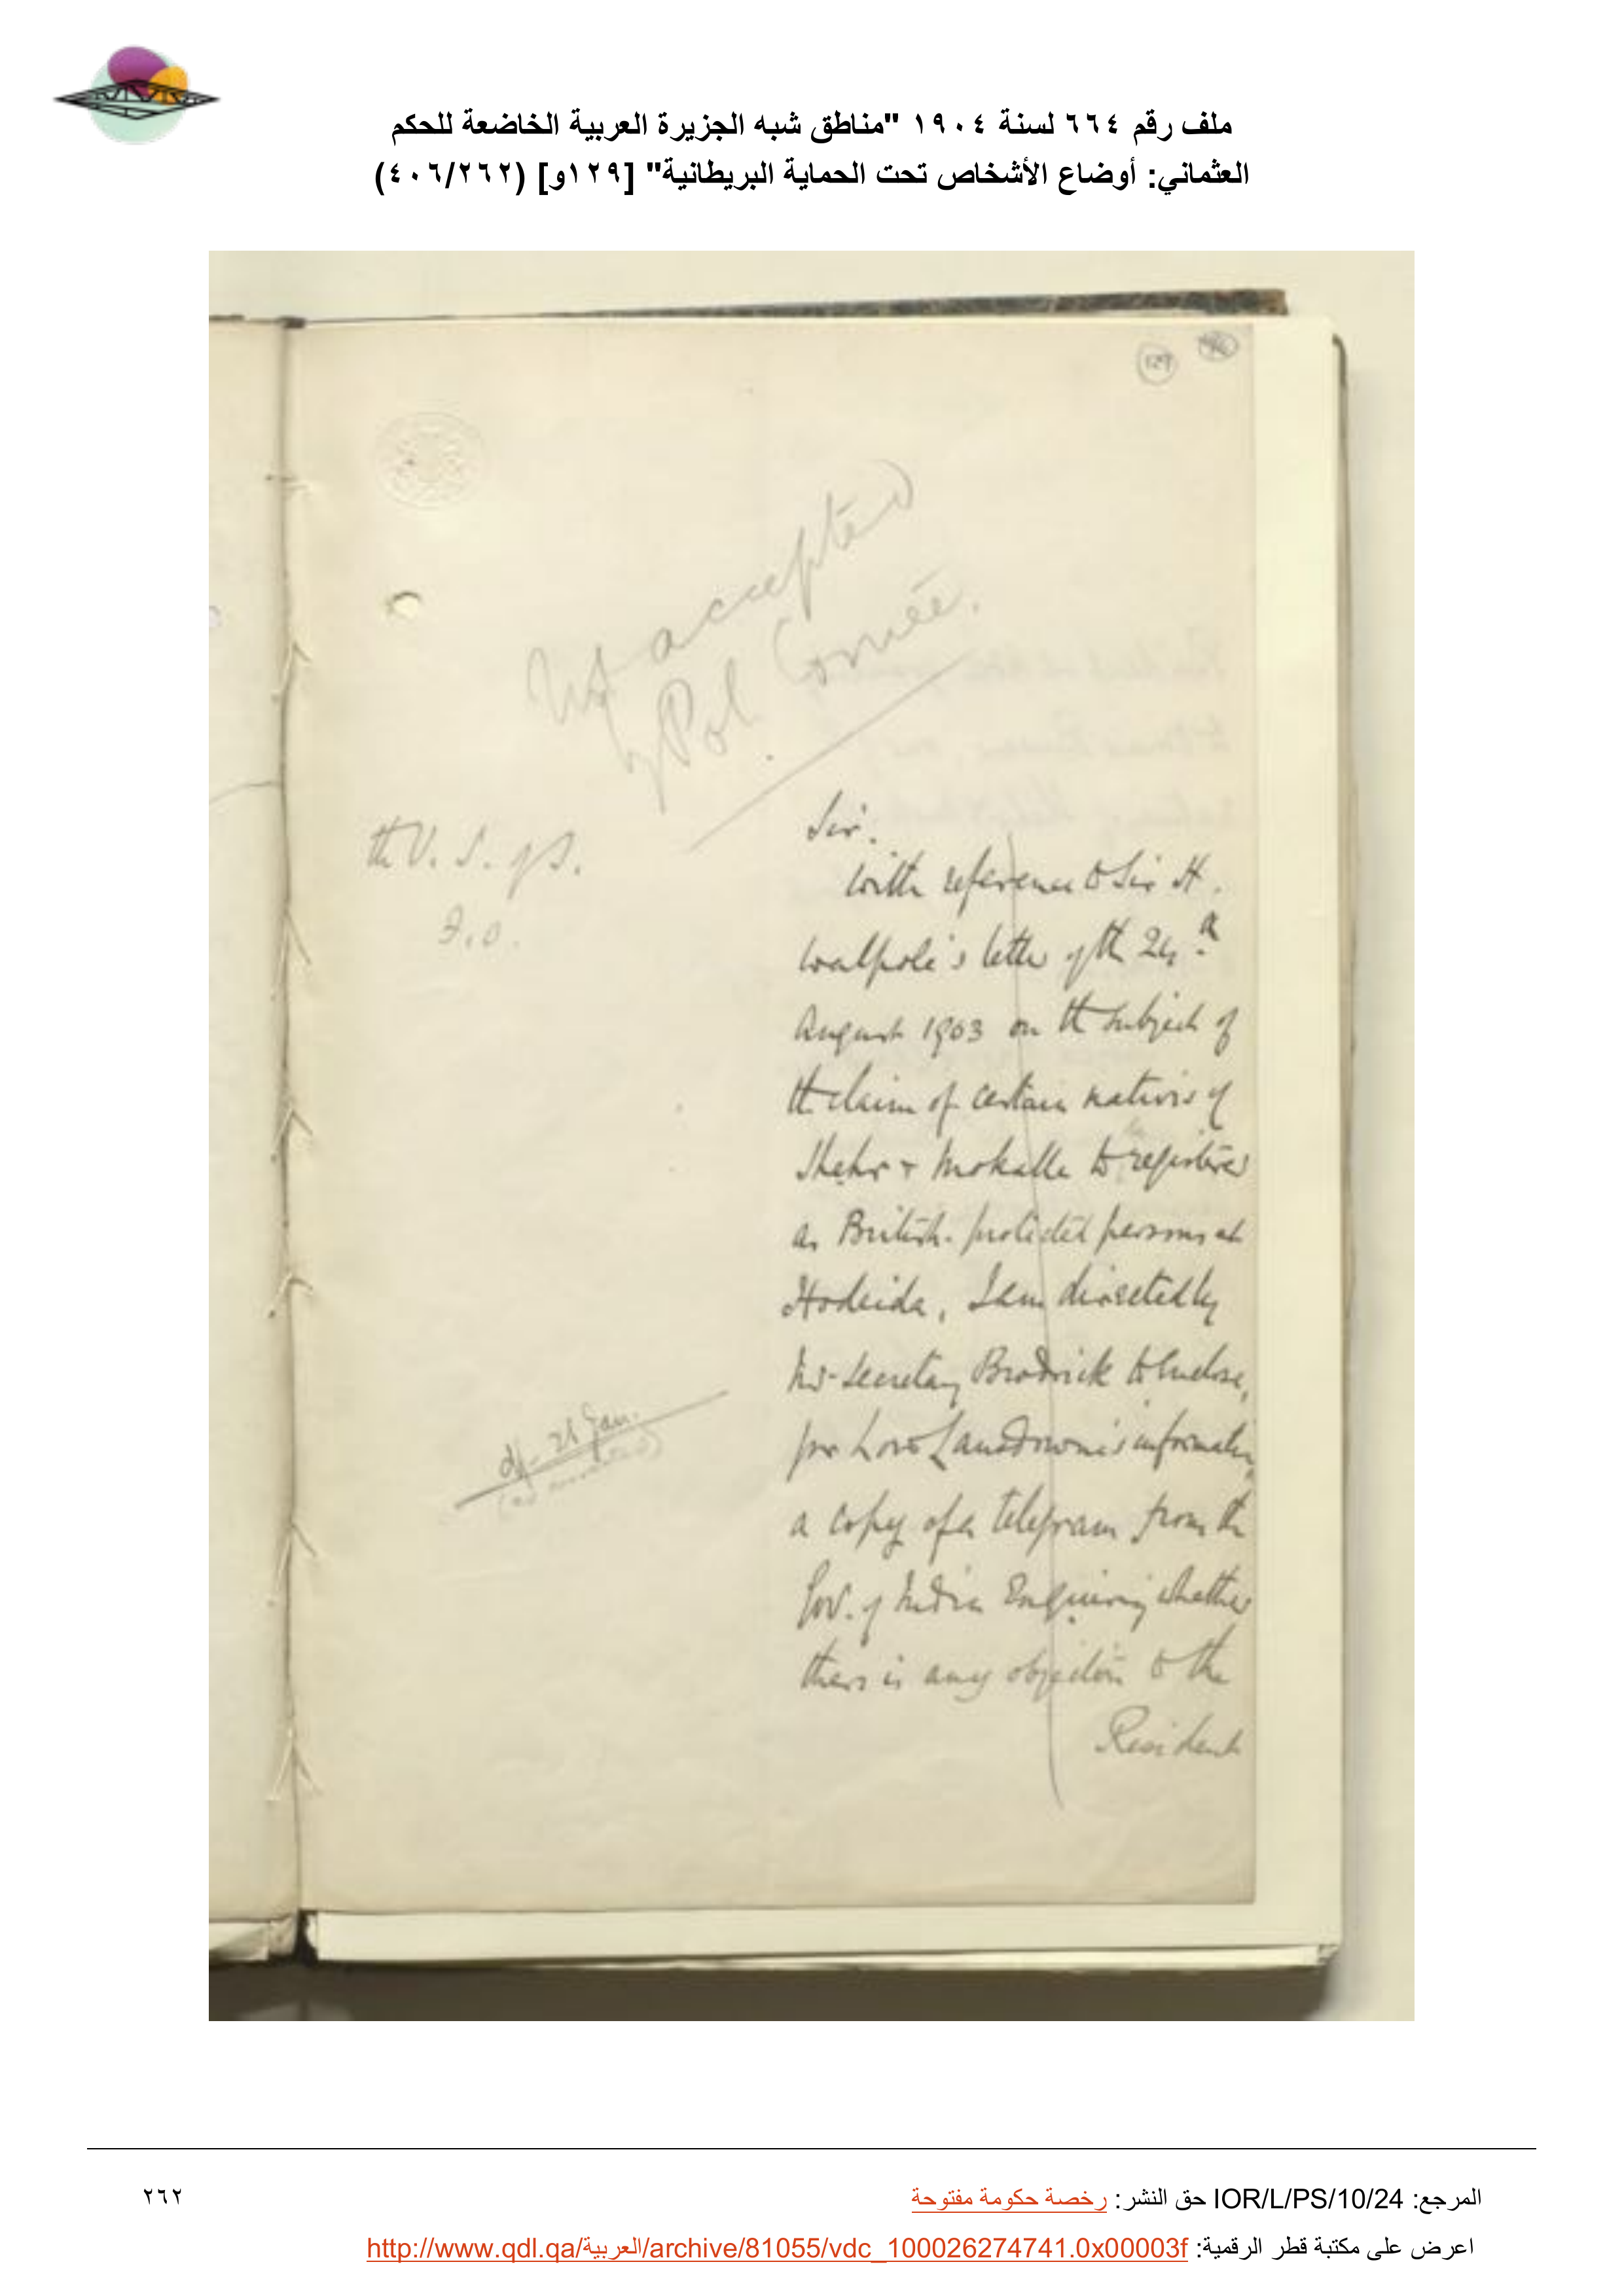 ملف رقم ٦٦٤ لسنة ١٩٠٤ "مناطق شبه الجزيرة العربية الخاضعة للحكم
العثماني: أوضاع الأشخاص تحت الحماية البريطانية" [١٢٩و] (٤٠٦/٢٦٢)
129
Not accepted
by Pol. Comtee.
th U. S. of S.
F.O.
Sir.
With reference to Sir H.
Walpole's letter of th 24th
August 1903 on th subject of
th claim of certain natives of
Shehr & Mokalla to register
as British-protected persons at
Hodeida, I am directed by
Mr Secretary Brodrick to enclose,
for Lord Lansdowne's information,
a copy of a telegram from th
Gov. of India enquiring whether
there is any objection to the
Resident
dft 21 Jan.
المرجع: IOR/L/PS/10/24 حق النشر: رخصة حكومة مفتوحة
٢٦٢
اعرض على مكتبة قطر الرقمية: http://www.qdl.qa/العربية/archive/81055/vdc_100026274741.0x00003f